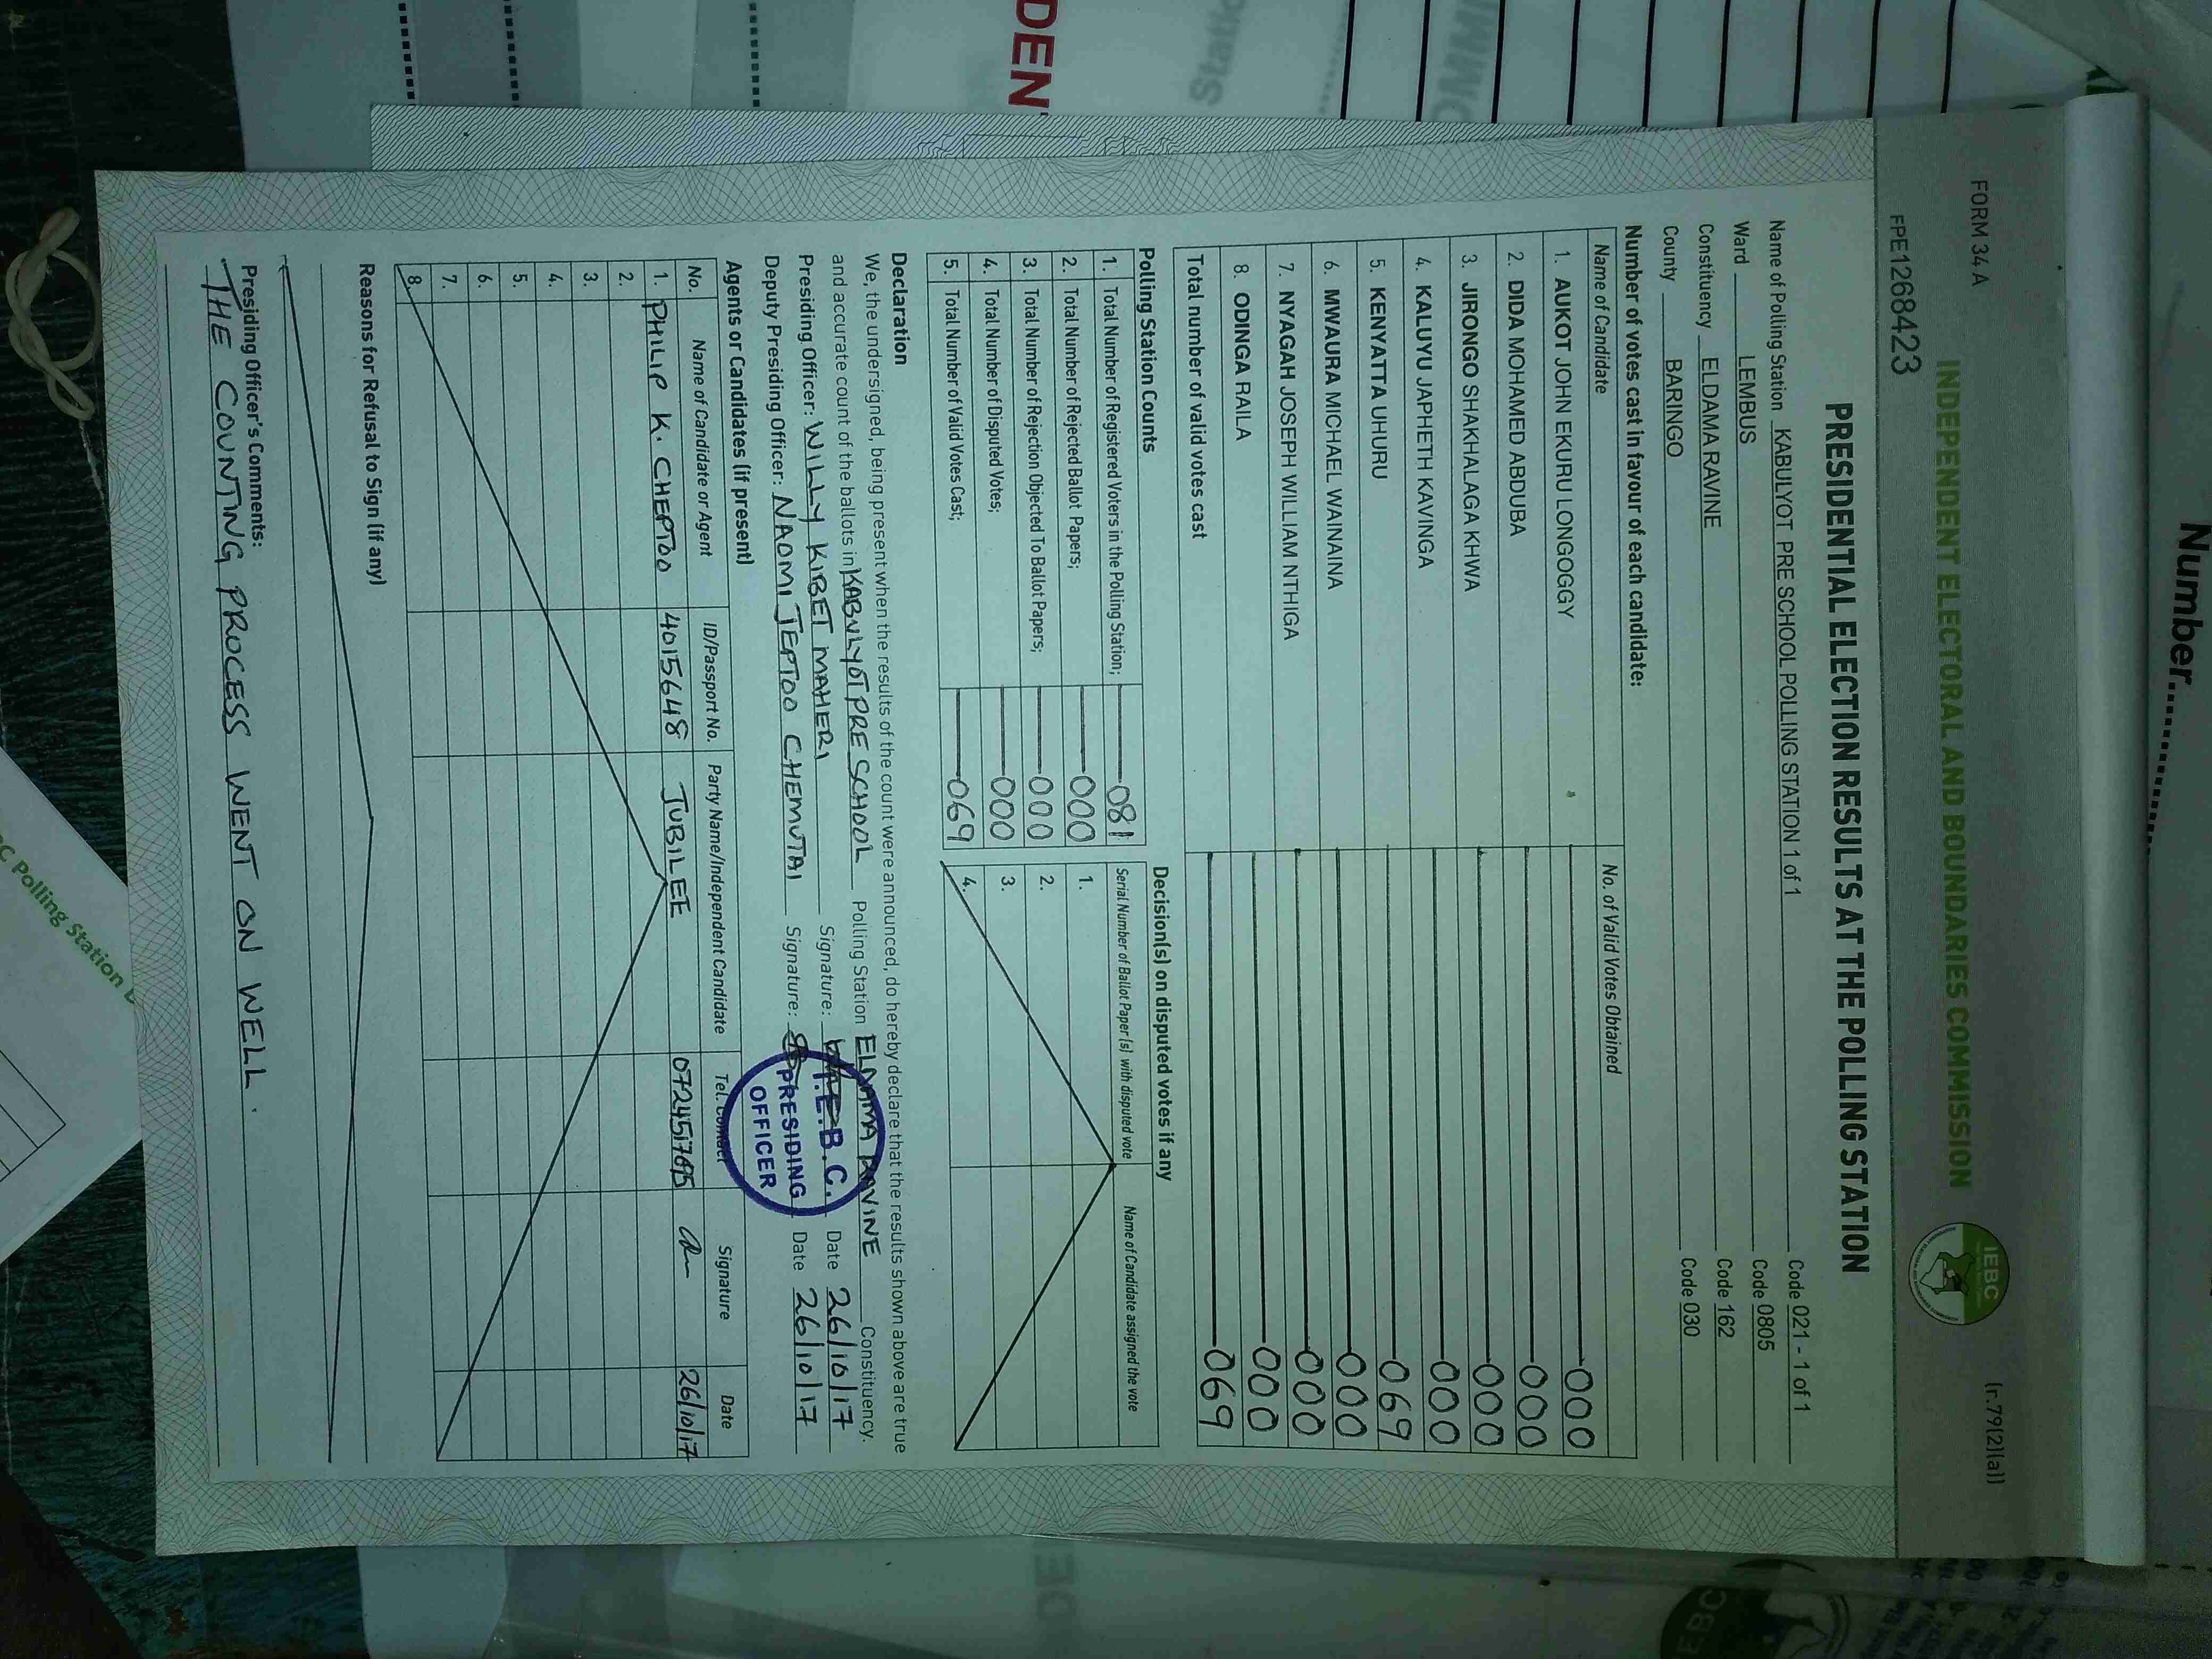 Number
FORM 34 A
(r.79(2)(a))
INDEPENDENT ELECTORAL AND BOUNDARIES COMMISSION
IEBC
FPE1268423
PRESIDENTIAL ELECTION RESULTS AT THE POLLING STATION
Name of Polling Station KABULYOT PRE SCHOOL POLLING STATION 1 of 1 Code 021 - 1 of 1
Ward LEMBUS Code 0805
Constituency ELDAMA RAVINE Code 162
County BARINGO Code 030
Number of votes cast in favour of each candidate:
Name of Candidate No. of Valid Votes Obtained
1. AUKOT JOHN EKURU LONGOGGY 000
2. DIDA MOHAMED ABDUBA 000
3. JIRONGO SHAKHALAGA KHWA 000
4. KALUYU JAPHETH KAVINGA 000
5. KENYATTA UHURU 069
6. MWAURA MICHAEL WAINAINA 000
7. NYAGAH JOSEPH WILLIAM NTHIGA 000
8. ODINGA RAILA 000
Total number of valid votes cast 069
Polling Station Counts
1. Total Number of Registered Voters in the Polling Station; 081
2. Total Number of Rejected Ballot Papers; 000
3. Total Number of Rejection Objected To Ballot Papers; 000
4. Total Number of Disputed Votes; 000
5. Total Number of Valid Votes Cast; 069
Decision(s) on disputed votes if any
Serial Number of Ballot Paper (s) with disputed vote Name of Candidate assigned the vote
1.
2.
3.
4.
Declaration
We, the undersigned, being present when the results of the count were announced, do hereby declare that the results shown above are true
and accurate count of the ballots in KABULYOT PRE SCHOOL Polling Station ELDAMA RAVINE Constituency.
Presiding Officer: WILLY KIBET MAHERI Signature: Date 26/10/17
Deputy Presiding Officer: NAOMI JEPTOO CHEMUTAI Signature: Date 26/10/17
I.E.B.C.
PRESIDING
OFFICER
Agents or Candidates (if present)
No. Name of Candidate or Agent ID/Passport No. Party Name/Independent Candidate Tel. Contact Signature Date
1. PHILIP K. CHEPTOO 4015648 JUBILEE 26/10/17
2.
3.
4.
5.
6.
7.
8.
Reasons for Refusal to Sign (if any)
Presiding Officer's Comments:
THE COUNTING PROCESS WENT ON WELL.
DEN
Polling Station
IEBC